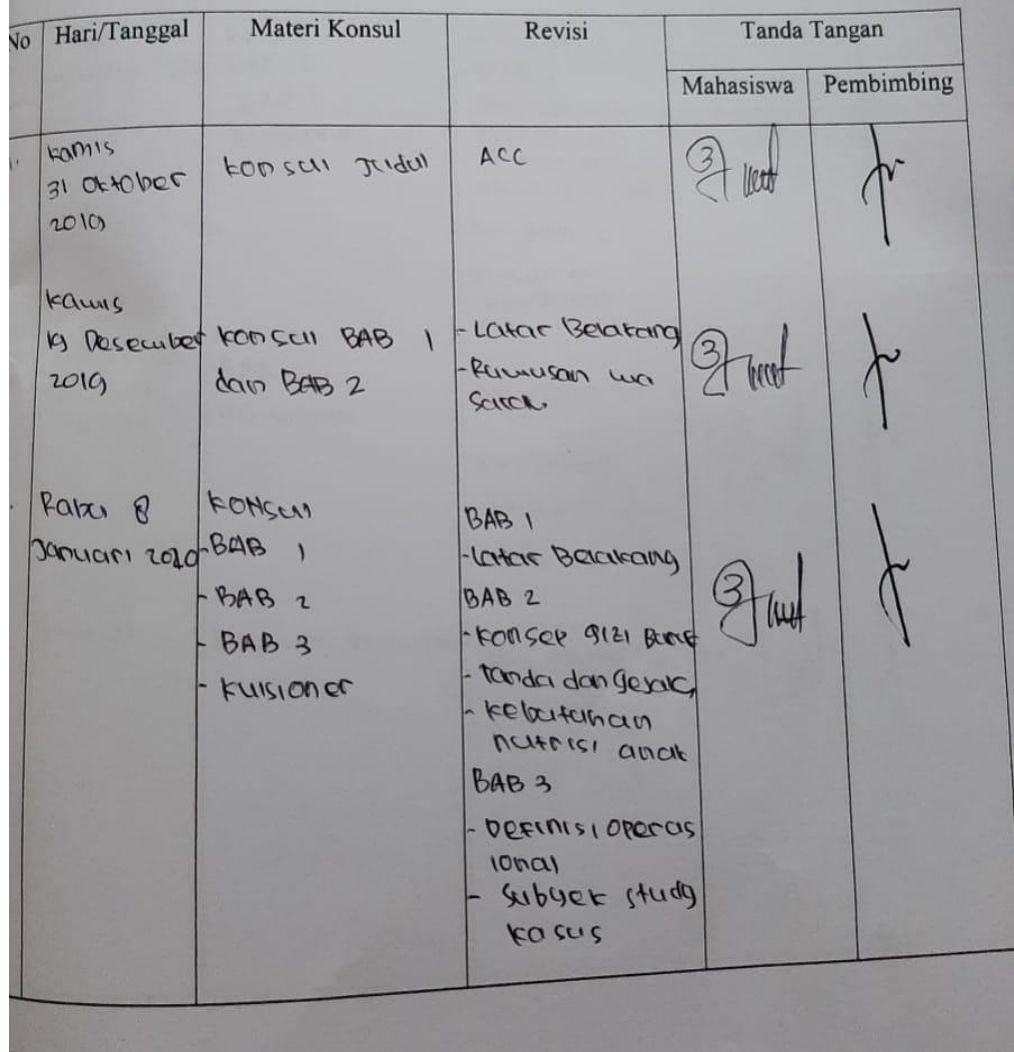 No Hari/Tanggal Materi Konsul Revisi Tanda Tangan
Mahasiswa Pembimbing
1. Kamis
31 Oktober
2019
Konsul Judul
ACC
Kamis
19 Desember
2019
Konsul BAB 1
dan BAB 2
- Latar Belakang
- Rumusan ma
salah
Rabu 8
Januari 2020
Konsul
- BAB 1
- BAB 2
- BAB 3
- Kuisioner
BAB 1
- Latar Belakang
BAB 2
- Konsep gizi
- Tanda dan Gejala
- Kebutuhan
nutrisi anak
BAB 3
- Definisi Operas
ional
- Subyek study
kasus